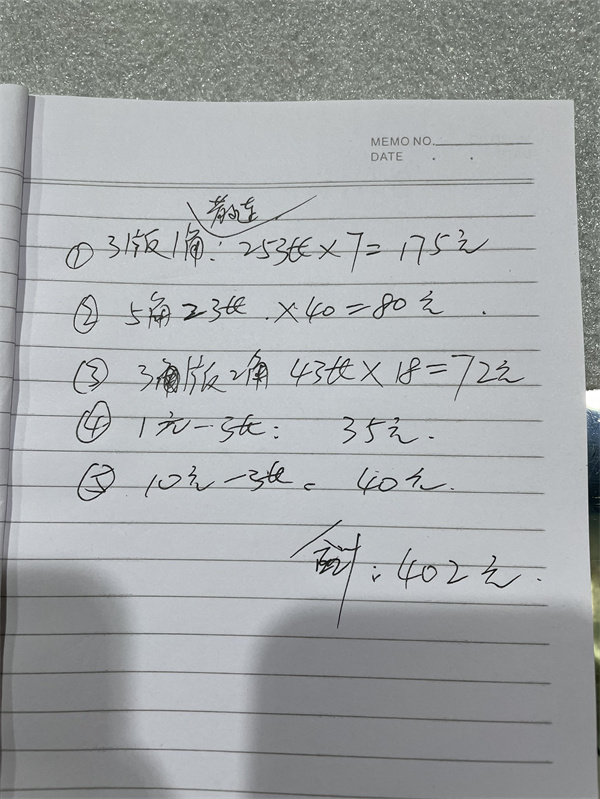 MEMO NO.
DATE . .
① 3版1角: 25张×7=175元
② 5角2张.×40=80元.
③ 3版2角 4张×18=72元
④ 1元一张: 35元.
⑤ 10元一张。 40元.
合计:402元.